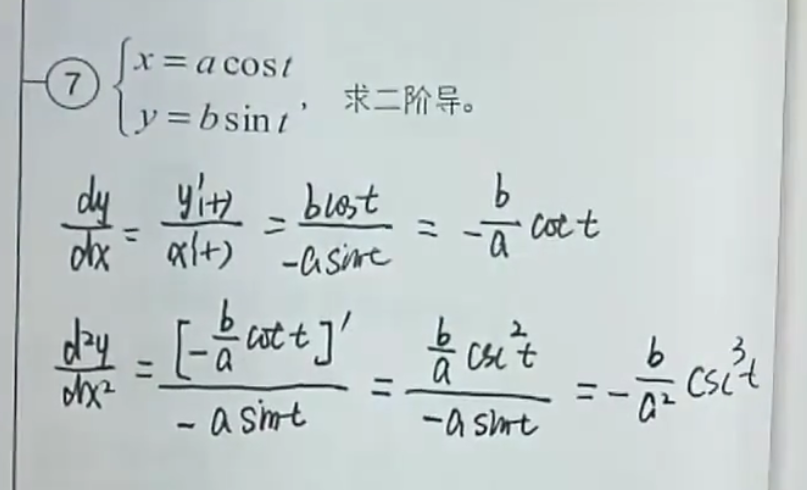 ⑦ { x = a cos t
y = b sin t , 求二阶导。
dy/dx = y'(t)/x'(t) = b cos t/-a sin t = -b/a cot t
d²y/dx² = [-b/a cot t]'/-a sin t = b/a csc²t/-a sin t = -b/a² csc³t